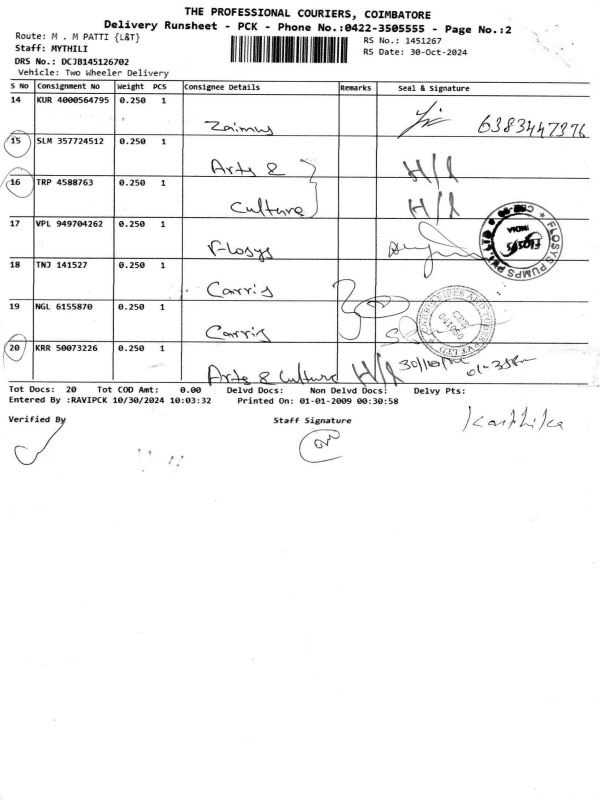 THE PROFESSIONAL COURIERS, COIMBATORE
Delivery Runsheet - PCK - Phone No.:0422-3505555 - Page No.:2
Route: M . M PATTI {L&T}
RS No.: 1451267
Staff: MYTHILI
RS Date: 30-Oct-2024
DRS No.: DCJB145126702
Vehicle: Two Wheeler Delivery
S No Consignment No Weight PCS Consignee Details Remarks Seal & Signature
14 KUR 4000564795 0.250 1
Zaimus 6383447376
15 SLM 357724512 0.250 1
Arts & H/l
16 TRP 4588763 0.250 1
Culture H/l
17 VPL 949704262 0.250 1
Flosys
FLOSYS PUMPS PVT. LTD
FLOSYS
INDIA
18 TNJ 141527 0.250 1
Carris
19 NGL 6155870 0.250 1
Carris
20 KRR 50073226 0.250 1
Arts & Culture H/l 30/10/24
Tot Docs: 20 Tot COD Amt: 0.00 Delvd Docs: Non Delvd Docs: Delvy Pts:
Entered By :RAVIPCK 10/30/2024 10:03:32 Printed On: 01-01-2009 00:30:58
Verified By Staff Signature
Karthika